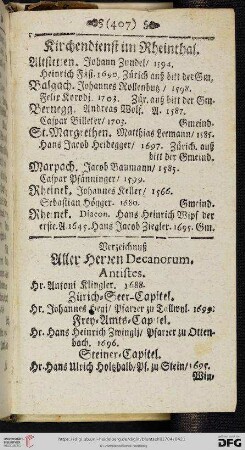 (407)
Kirchendienst im Rheinthal.
Altstetten. Johann Zundel/ 1594.
Heinrich Fäsi. 1690. Zürich auß bitt der Gm.
Balgach. Johannes Rollenbutz / 1598.
Felix Korrodj. 1703. Zür. auß bitt der Gm.
Bernegg. Andreas Wolf. A. 1587.
Caspar Billeter/ 1703. Gmeind.
St. Margrethen. Matthias Leemann/ 1585.
Hans Jacob Heidegger/ 1697. Zürich. auß
bitt der Gmeind.
Marpach. Jacob Baumann/ 1585.
Caspar Pfänninger/ 1599.
Rheinek. Johannes Keller/ 1566.
Sebastian Högger. 1680. Gmeind.
Rheinek. Diacon. Hans Heinrich Wipf der
erste. A. 1645. Hans Jacob Ziegler. 1695. Gm.
Verzeichnuß
Aller Herren Decanorum.
Antistes.
Hr. Antoni Klingler. 1688.
Zürich-Seer-Capitel.
Hr. Johannes / Pfarrer zu Zollwyl. 1699.
Frey-Amts-Capitel.
Hr. Hans Heinrich Zwinglj/ Pfarrer zu Otten-
bach. 1696.
Steiner-Capitel.
Hr. Hans Ulrich Holtzhalb/ Pf. zu Stein/ 1695.
Win-
DFG